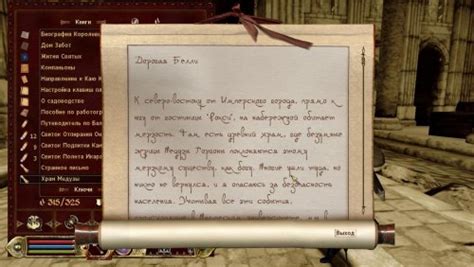 Книги
Биография Королевы
Дом Забот
Жития Святых
Компаньоны
Направляясь к Каю
Настройка клавиш
О садоводстве
Пособие по
Путеводитель по
12 Свиток Отпирания
3 Свиток Подпитки
4 Свиток Полета
Странное письмо
Храм Медузы
Ключи
315/325
Дорогая Белли
К северо-востоку от Имперского города, прямо к
югу от гостиницы на набережной обитает
мерзость. Там, есть древний храм, где безумно
жрицы Медузы Горгоны поклоняются этому
мерзкому существу, как богу. Многие ушли туда, но
никто не вернулся, и я опасаюсь за безопасность
населения. Учитывая все эти события,
Выход